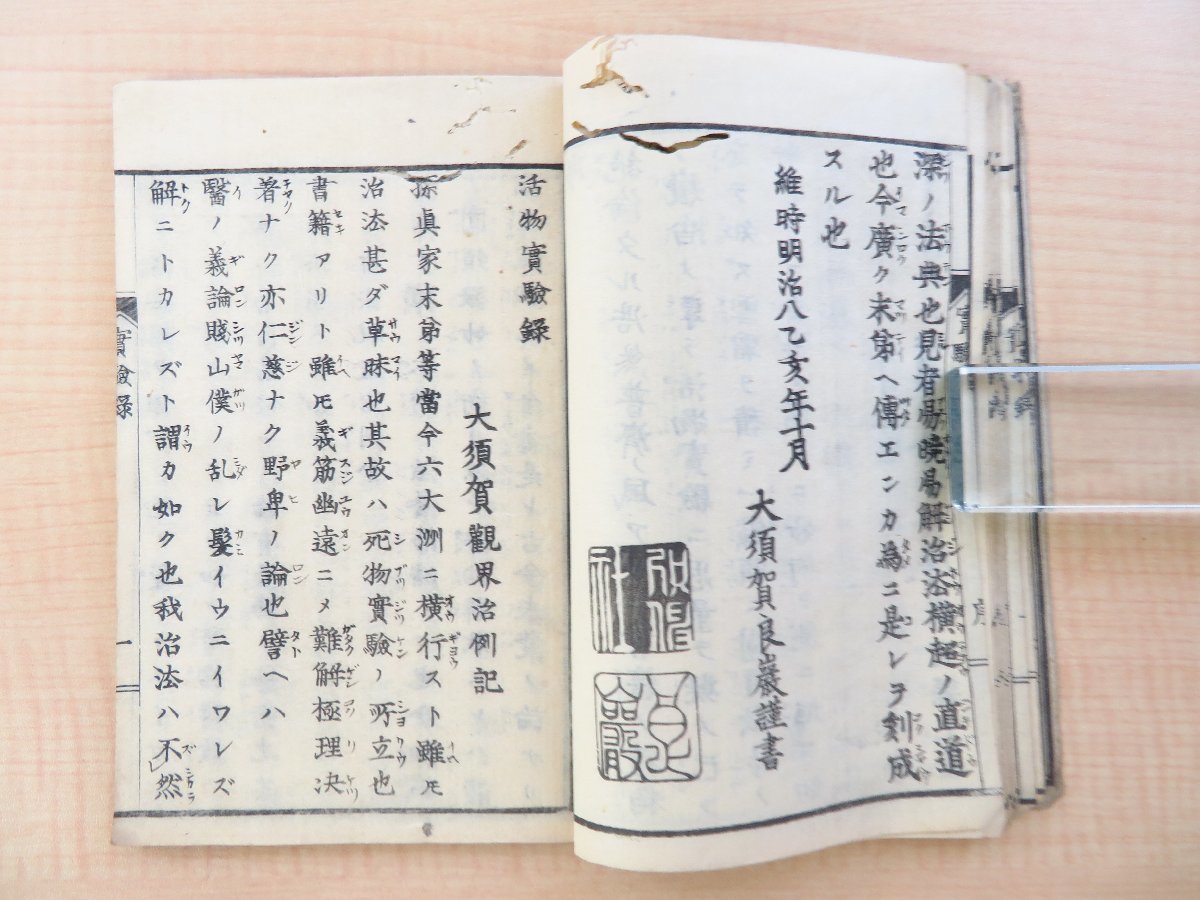 深ノ法典也見者易暁易解治法横超ノ直道
也今廣ク末第ヘ傳エンカ為ニ是レヲ刻成
スル也
維時明治八乙亥年十月
大須賀良巖謹書
活物實驗録
大須賀觀界治例記
孫眞家末第等當今六大洲ニ横行スト雖モ
治法甚ダ草昧也其故ハ死物實驗ノ所立也
書籍アリト雖モ義筋幽遠ニメ難解極理决
著ナク亦仁慈ナク野卑ノ論也譬ヘハ
醫ノ義論賤山僕ノ乱レ髮イウニイワレズ
解ニトカレズト謂カ如ク也我治法ハ不然
實驗録
一